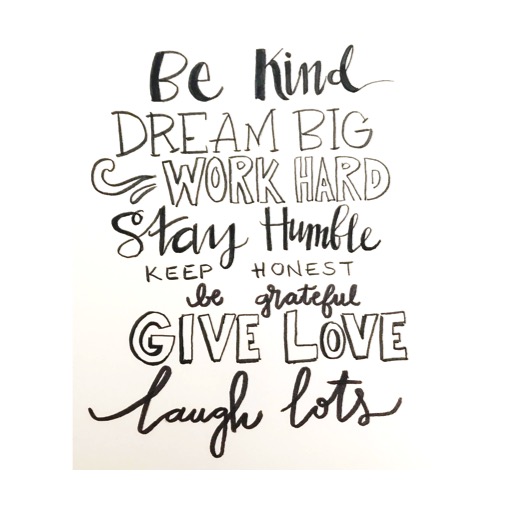 Be Kind
DREAM BIG
WORK HARD
Stay Humble
KEEP HONEST
be grateful
GIVE LOVE
laugh lots